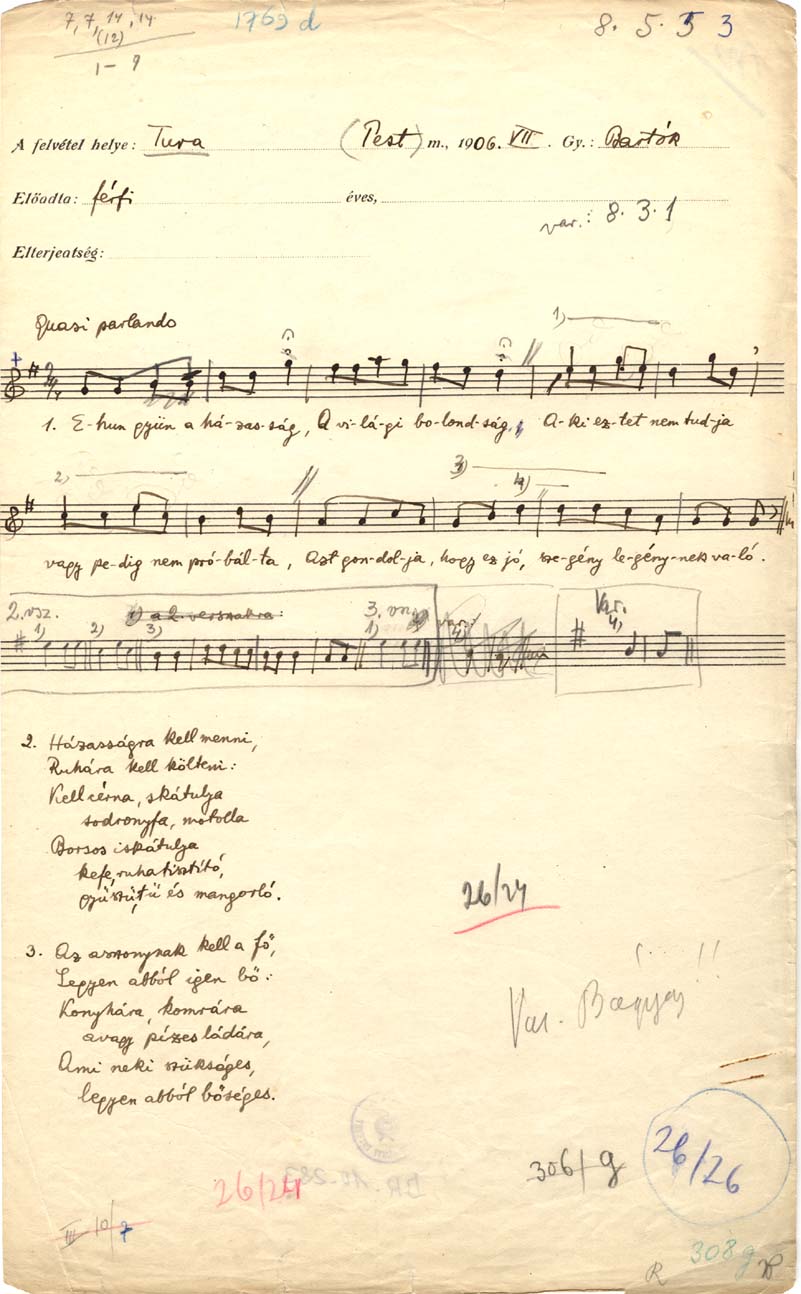 7, 7, 14, 14
(12)
1-9
1769 d
8. 5. 5 3
A felvétel helye: Tura (Pest) m., 1906. VII. Gy.: Bartók
Előadta: férfi éves,
var.: 8. 3. 1
Elterjedtség:
Quasi parlando
1)
1. E-hun gyün a há-zas-ság, A vi-lá-gi bo-lond-ság, A-ki ez-tet nem tud-ja
2) 3) 4)
vagy pe-dig nem pró-bál-ta, Azt gon-dol-ja, hogy ez jó, sze-gény le-gény-nek va-ló.
2. vsz. 1) a 2. versszakra: 3. Var.
1) 2) 3) 1) 4)
2. Házasságra kell menni,
Ruhára kell költeni:
Kell cérna, skátulya
sodronyfa, motolla
Borsos iskátulya
kefe, ruhatisztító,
gyüszü, tü és mangorló.
26/24
3. Az asszonynak kell a fő,
Legyen abból igen bő:
Konyhára, komrára
avagy pízes ládára,
Ami neki szükséges,
legyen abból bőséges.
Var.
306/g
26/26
26/24
III 10/7
308 g
R